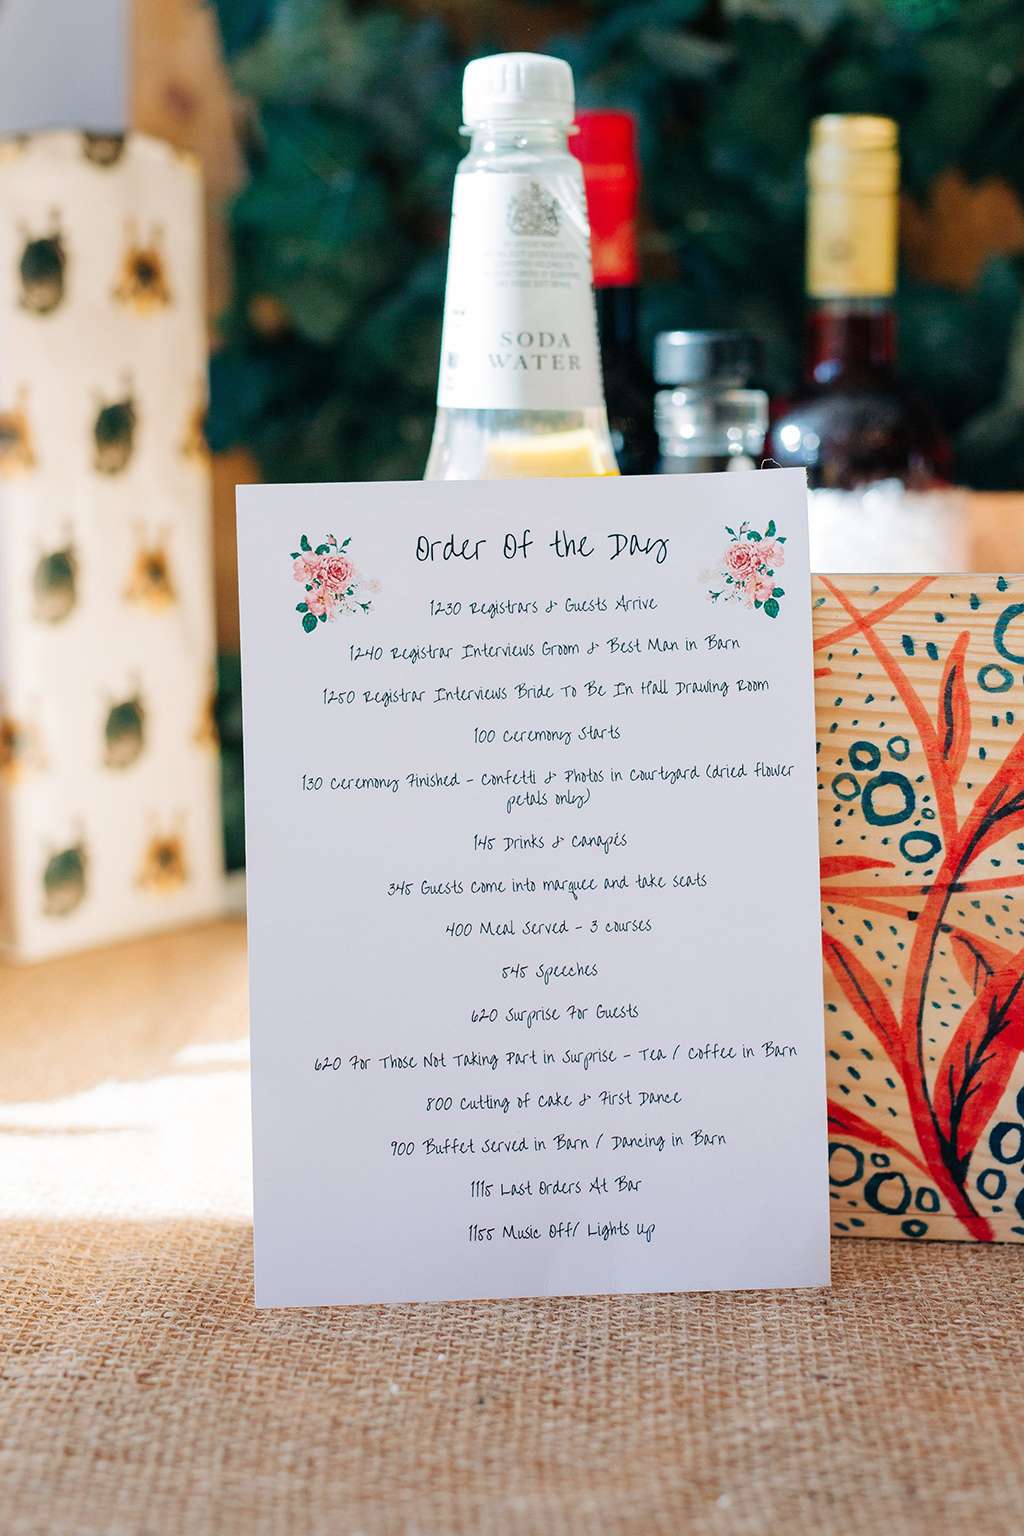 SODA
WATER
Order Of the Day
1230 Registrars & Guests Arrive
1240 Registrar Interviews Groom & Best Man in Barn
1250 Registrar Interviews Bride To Be In Hall Drawing Room
100 Ceremony Starts
130 Ceremony Finished - Confetti & Photos in Courtyard (dried flower
petals only)
145 Drinks & Canapés
345 Guests come into marquee and take seats
400 Meal Served - 3 courses
545 Speeches
620 Surprise For Guests
620 For Those Not Taking Part in Surprise - Tea / Coffee in Barn
800 Cutting of Cake & First Dance
900 Buffet Served in Barn / Dancing in Barn
1115 Last Orders At Bar
1155 Music Off/ Lights Up